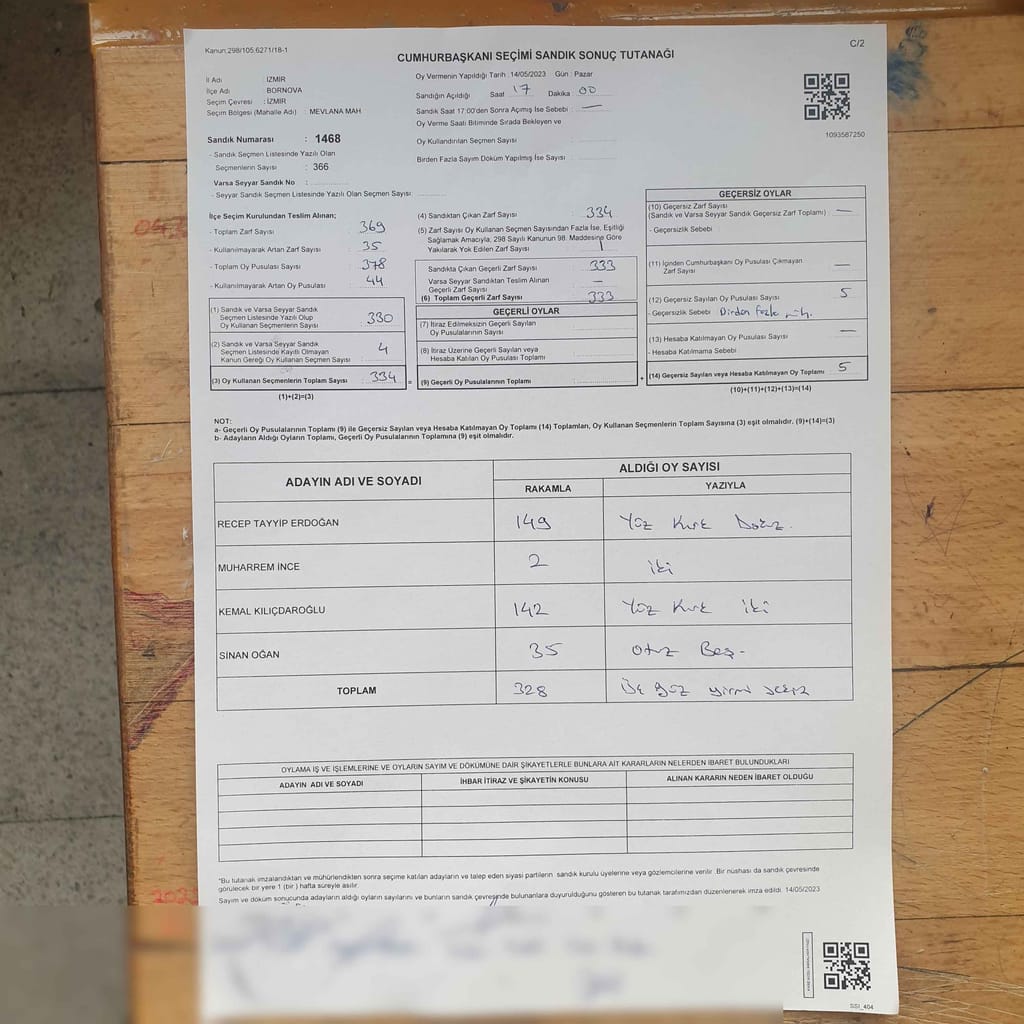 Kanun:298/105.6271/18-1
C/2
CUMHURBAŞKANI SEÇİMİ SANDIK SONUÇ TUTANAĞI
İl Adı İZMİR
İlçe Adı BORNOVA
Seçim Çevresi : İZMİR
Seçim Bölgesi (Mahalle Adı) : MEVLANA MAH
Oy Vermenin Yapıldığı Tarih :14/05/2023 Gün : Pazar
Sandığın Açıldığı Saat 17 Dakika 00
Sandık Saat 17:00'den Sonra Açımış İse Sebebi : —
Oy Verme Saati Bitiminde Sırada Bekleyen ve
Oy Kullandırılan Seçmen Sayısı
Birden Fazla Sayım Döküm Yapılmış İse Sayısı
1093587250
Sandık Numarası : 1468
- Sandık Seçmen Listesinde Yazılı Olan
Seçmenlerin Sayısı : 366
Varsa Seyyar Sandık No :
- Seyyar Sandık Seçmen Listesinde Yazılı Olan Seçmen Sayısı
İlçe Seçim Kurulundan Teslim Alınan;
- Toplam Zarf Sayısı : 369
- Kullanılmayarak Artan Zarf Sayısı : 35
- Toplam Oy Pusulası Sayısı : 378
- Kullanılmayarak Artan Oy Pusulası : 44
(1) Sandık ve Varsa Seyyar Sandık
Seçmen Listesinde Yazılı Olup
Oy Kullanan Seçmenlerin Sayısı : 330
(2) Sandık ve Varsa Seyyar Sandık
Seçmen Listesinde Kayıtlı Olmayan
Kanun Gereği Oy Kullanan Seçmen Sayısı : 4
(3) Oy Kullanan Seçmenlerin Toplam Sayısı : 334
(1)+(2)=(3)
(4) Sandıktan Çıkan Zarf Sayısı : 334
(5) Zarf Sayısı Oy Kullanan Seçmen Sayısından Fazla İse, Eşitliği
Sağlamak Amacıyla; 298 Sayılı Kanunun 98. Maddesine Göre
Yakılarak Yok Edilen Zarf Sayısı
Sandıkta Çıkan Geçerli Zarf Sayısı : 333
Varsa Seyyar Sandıktan Teslim Alınan
Geçerli Zarf Sayısı : —
(6) Toplam Geçerli Zarf Sayısı : 333
GEÇERLİ OYLAR
(7) İtiraz Edilmeksizin Geçerli Sayılan
Oy Pusulalarının Sayısı
(8) İtiraz Üzerine Geçerli Sayılan veya
Hesaba Katılan Oy Pusulası Toplamı
= (9) Geçerli Oy Pusulalarının Toplamı +
GEÇERSİZ OYLAR
(10) Geçersiz Zarf Sayısı
(Sandık ve Varsa Seyyar Sandık Geçersiz Zarf Toplamı) : —
- Geçersizlik Sebebi
(11) İçinden Cumhurbaşkanı Oy Pusulası Çıkmayan
Zarf Sayısı : —
(12) Geçersiz Sayılan Oy Pusulası Sayısı : 5
- Geçersizlik Sebebi : Birden fazla müh.
(13) Hesaba Katılmayan Oy Pusulası Sayısı : —
- Hesaba Katılmama Sebebi
(14) Geçersiz Sayılan veya Hesaba Katılmayan Oy Toplamı : 5
(10)+(11)+(12)+(13)=(14)
NOT:
a- Geçerli Oy Pusulalarının Toplamı (9) ile Geçersiz Sayılan veya Hesaba Katılmayan Oy Toplamı (14) Toplamları, Oy Kullanan Seçmenlerin Toplam Sayısına (3) eşit olmalıdır. (9)+(14)=(3)
b- Adayların Aldığı Oyların Toplamı, Geçerli Oy Pusulalarının Toplamına (9) eşit olmalıdır.
ADAYIN ADI VE SOYADI ALDIĞI OY SAYISI
RAKAMLA YAZIYLA
RECEP TAYYİP ERDOĞAN 149 Yüz Kırk Dokuz.
MUHARREM İNCE 2 iki
KEMAL KILIÇDAROĞLU 142 Yüz Kırk iki
SİNAN OĞAN 35 otuz Beş-
TOPLAM 328 Üç yüz yirmi sekiz
OYLAMA İŞ VE İŞLEMLERİNE VE OYLARIN SAYIM VE DÖKÜMÜNE DAİR ŞİKAYETLERLE BUNLARA AİT KARARLARIN NELERDEN İBARET BULUNDUKLARI
ADAYIN ADI VE SOYADI İHBAR İTİRAZ VE ŞİKAYETİN KONUSU ALINAN KARARIN NEDEN İBARET OLDUĞU
*Bu tutanak imzalandıktan ve mühürlendikten sonra seçime katılan adayların ve talep eden siyasi partilerin sandık kurulu üyelerine veya gözlemcilerine verilir. Bir nüshası da sandık çevresinde
görülecek bir yere 1 (bir ) hafta süreyle asılır.
Sayım ve döküm sonucunda adayların aldığı oyların sayılarını ve bunların sandık çevresinde bulunanlara duyurulduğunu gösteren bu tutanak tarafımızdan düzenlenerek imza edildi. 14/05/2023
SSİ_404